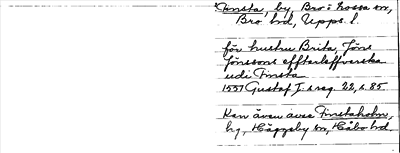 Finsta, by, Bro o Lossa sn,
Bro hd, Upps. l.
för hustru Brita, Jöns
Jönssons effterleffverska
udi Finsta
1557 Gustaf I:s reg. 22, s. 85.
Kan även avse Finstaholm,
hg, Häggeby sn, Håbo hd.